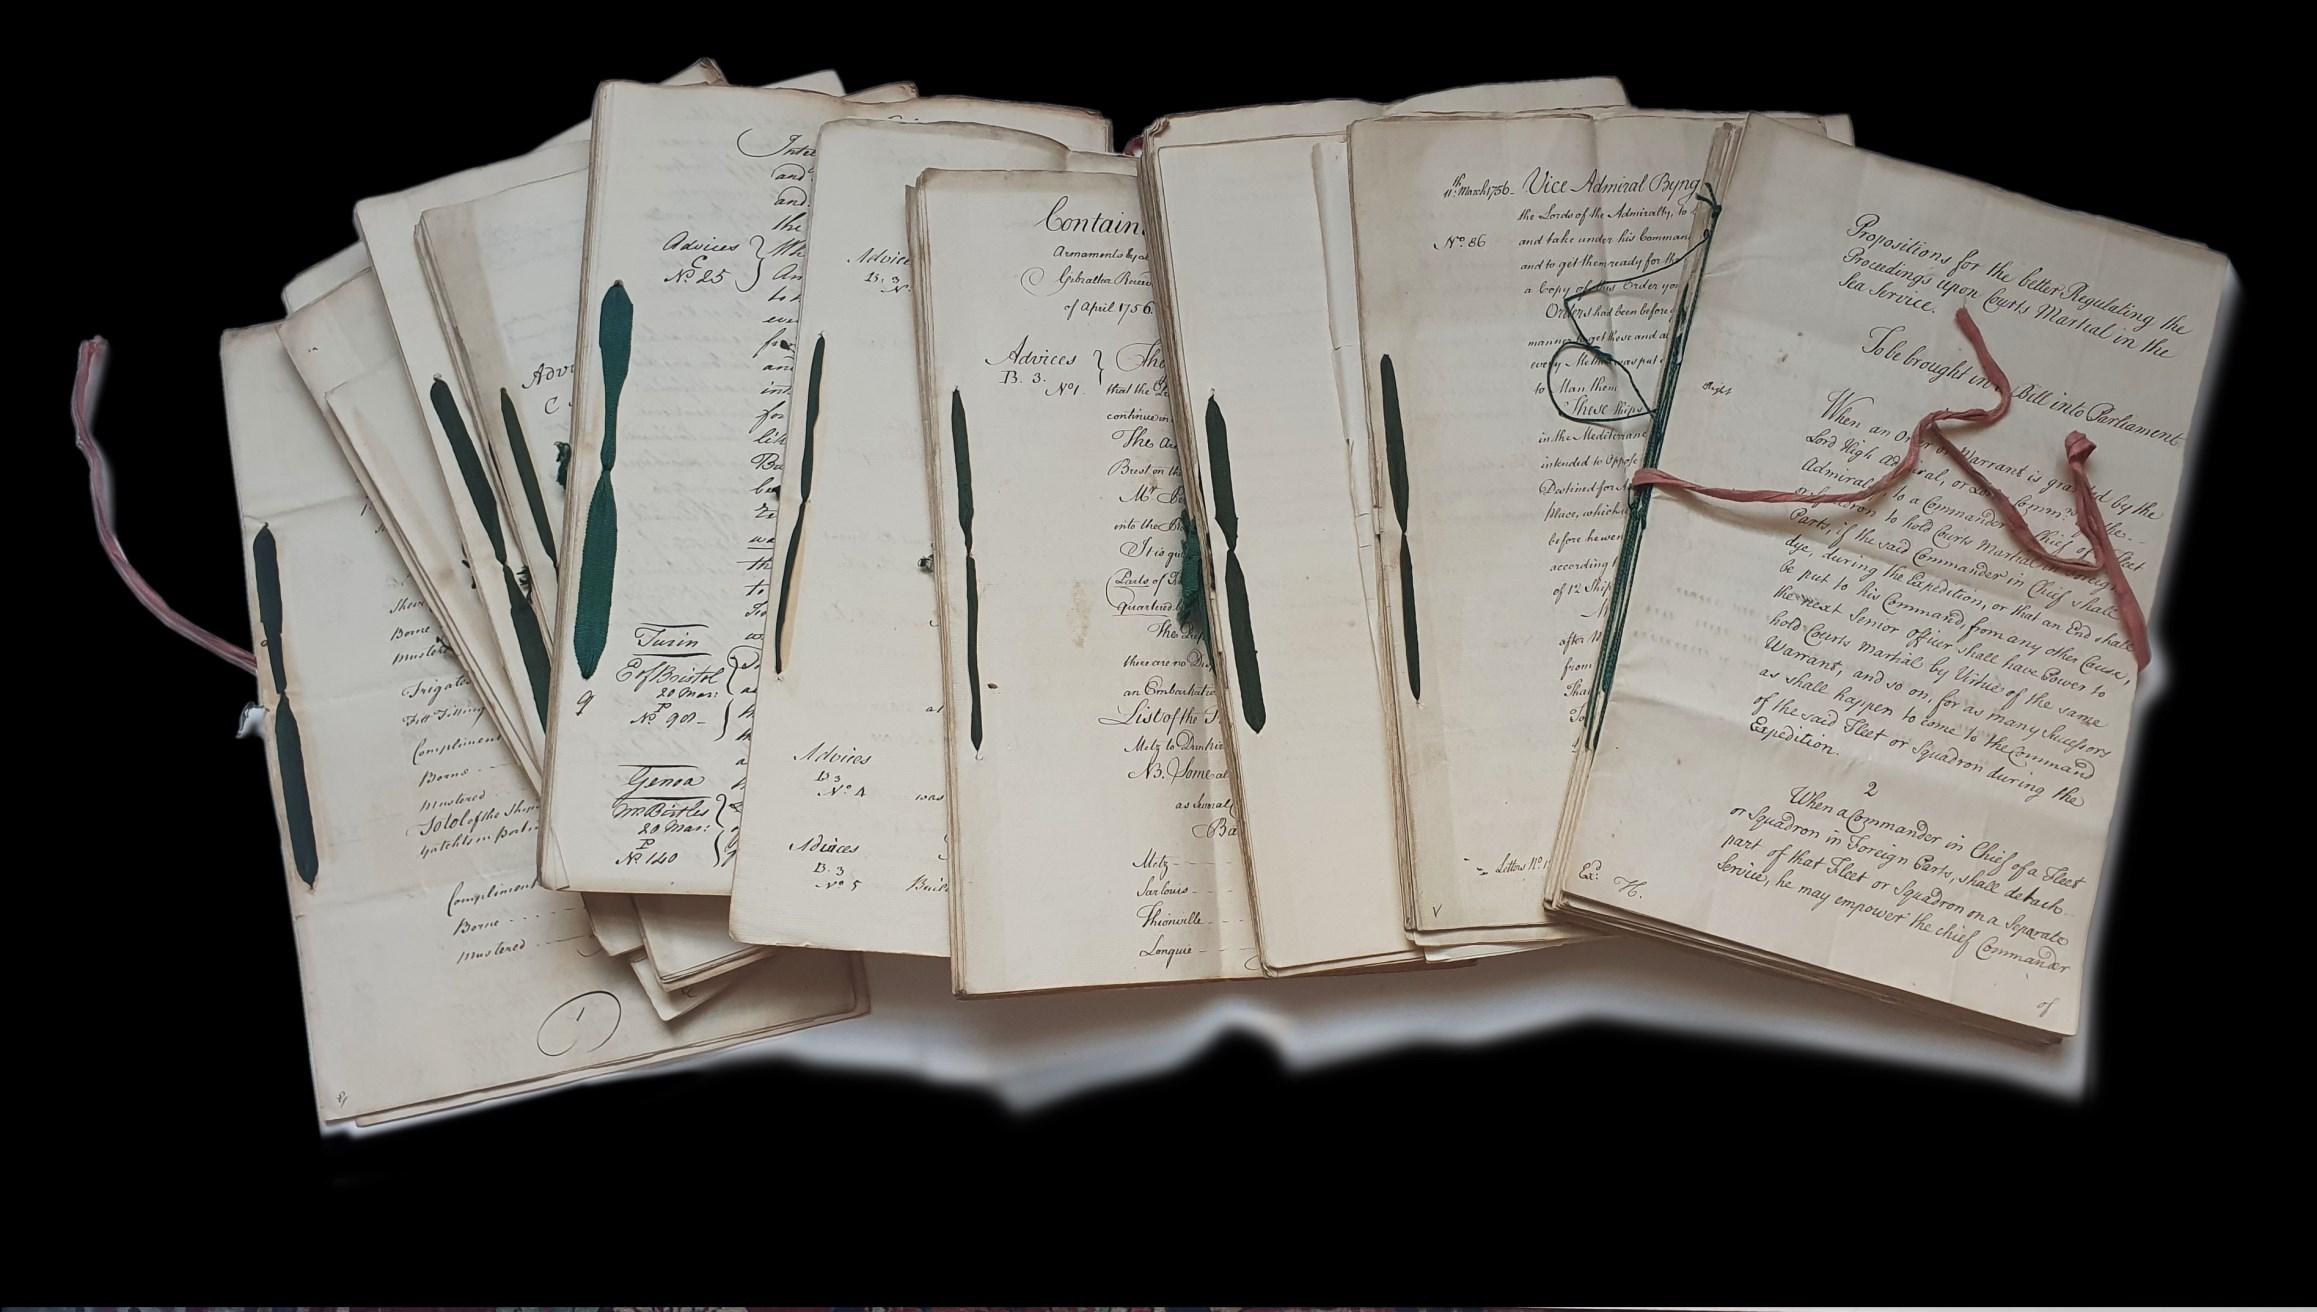 Shew
Borne
Mustered
Frigates
Fitting
Compliment
Borne
Mustered
Total of the Ships
Yatchts in Port
Compliment
Borne
Mustered
1
Adv
C
Inte
and
and
the
Advices
C
No. 25
to
for
and
for
to
Turin
E of Bristol
20 Mar:
P
No. 90
9
Genoa
Mr Birtles
20 Mar:
P
No. 140
Advice
B. 3
N
Advices
B. 3
No. 4
was
Advices
B. 3
No. 5
Contain
Armaments &
Gibraltar Receiv
of April 1756.
Advices
B. 3.
No. 1.
that the
continue in
The
Brest on the
Mr
into the
It is
Parts of
quartered
The
there are no
an Embarkatio
List of the
Metz to Dunkir
NB. Some
as several
Metz
Sarlouis
Thionville
Longuie
11th March 1756 Vice Admiral Byng
the Lords of the Admiralty, to
No. 86 and take under his Comman
and to get them ready for the
a Copy of this Order
Orders had been before
manner to get these and
every Method was put
to Man them
These Ships
in the Mediterrane
intended to Oppose
Destined for
Place, which
before he wen
according
of 12 Ship
after
from
That
To
Letters No. 1
V
Propositions for the better Regulating the
Proceedings upon Courts Martial in the
Sea Service.
To be brought in Bill into Parliament
When an Order or Warrant is granted by the
Lord High Admiral, or Lords Commrs. of the
Admiralty, to a Commander in Chief of a Fleet
or Squadron to hold Courts Martial in Foreign
Parts, if the said Commander in Chief shall
dye, during the Expedition, or that an End shall
be put to his Command from any other Cause,
the next Senior officer shall have Power to
hold Courts Martial by Virtue of the same
Warrant, and so on, for as many Successors
as shall happen to come to the Command
of the said Fleet or Squadron during the
Expedition.
2
When a Commander in Chief of a Fleet
or Squadron in Foreign Parts, shall detach
part of that Fleet or Squadron on a Separate
Service, he may empower the chief Commander
of
Exd.
H.